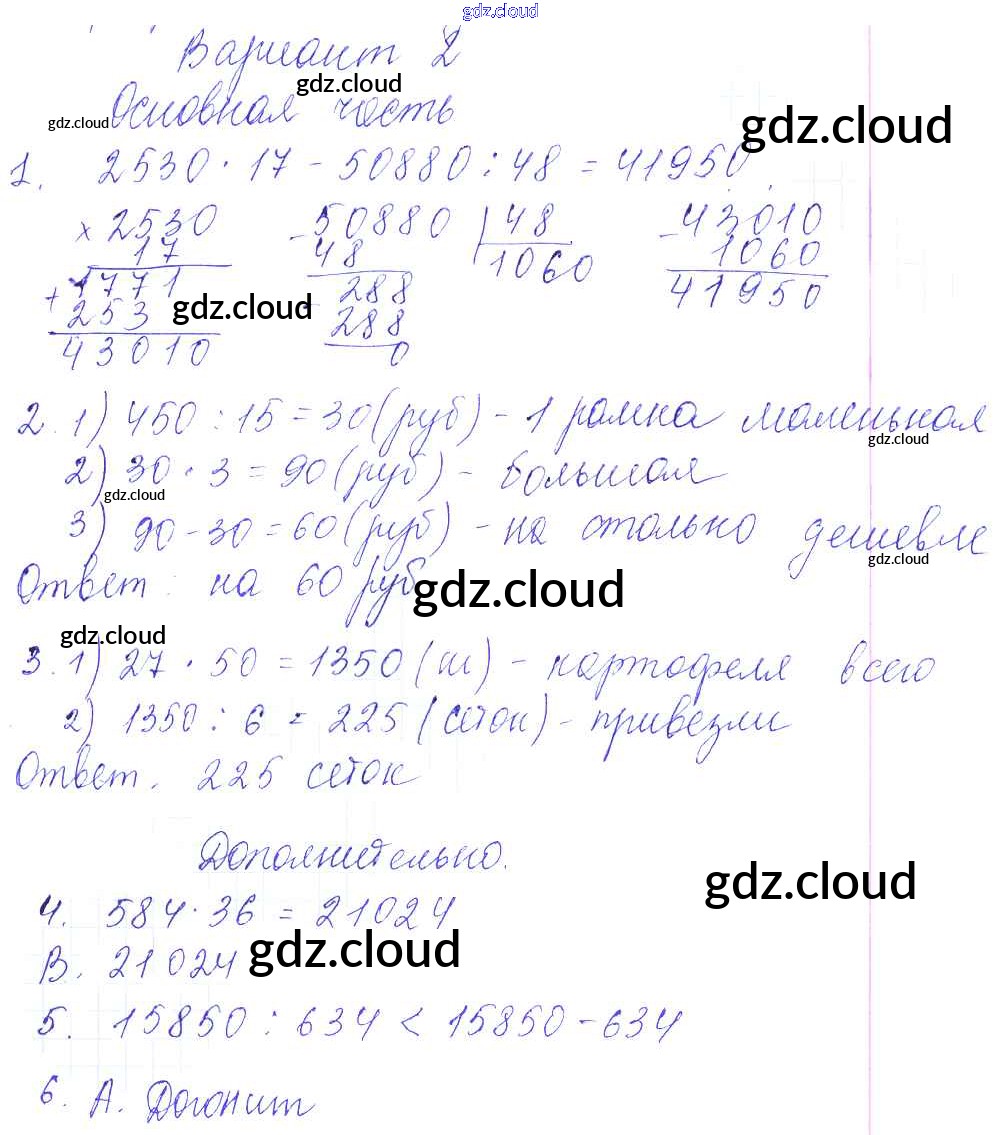 gdz.cloud
Вариант 2
gdz.cloud
Основная часть
gdz.cloud
gdz.cloud
1. 2530 · 17 - 50880 : 48 = 41950
× 2530 - 50880 | 48 - 43010
17 48 1060 1060
+ 1771 - 288 41950
253 288
43010 0
gdz.cloud
2. 1) 450 : 15 = 30 (руб) - 1 рамка маленькая
gdz.cloud
2) 30 · 3 = 90 (руб) - большая
gdz.cloud
3) 90 - 30 = 60 (руб) - на столько дешевле
gdz.cloud
Ответ: на 60 руб
gdz.cloud
gdz.cloud
3. 1) 27 · 50 = 1350 (ш) - картофеля всего
2) 1350 : 6 = 225 (сеток) - привезли
Ответ. 225 сеток
Дополнительно.
gdz.cloud
4. 584 · 36 = 21024
В. 21024
gdz.cloud
5. 15850 : 634 < 15850 - 634
6. А. Догонит